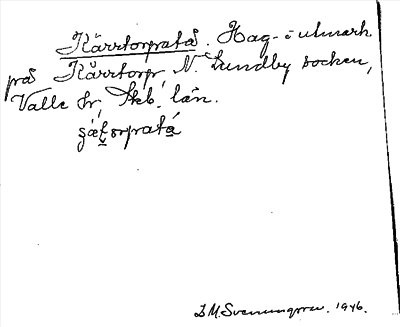 Kärrtorpratå. Hag- i utmark
på Kärrtorp, N. Lundby socken,
Valle hr, Skb. län.
S. M. Svenungsson. 1946.